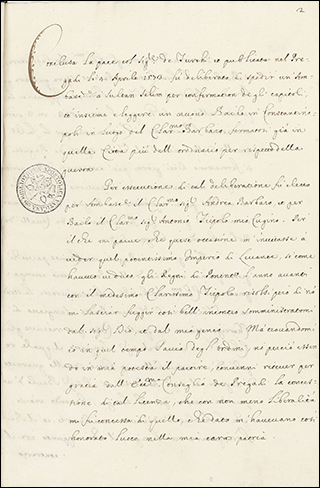 2
Conclusa la pace col sigr. de Turchi et publicata nel Pre=
gadi li 4 Aprile 1573 fu deliberato di spedir un Am=
basr. à Sultan Selim per confirmation de gl' capitoli,
et insieme eleggere un nuovo Bailo in Constantino=
poli in luogo del Clarmo. Barbaro, fermatosi già in
quella Città più dell' ordinario per rispetto della
guerra.
Per essecutione di tal deliberatione fu eletto
per Ambasr. il Clarmo. sigr. Andrea et per
Bailo il Clarmo. sigr. Antonio Tiepolo mio Cugino. Per
il che mi parve, che occasione m'invitasse à
veder quel potentissimo Imperio di Levante, si come
havevo veduto gli Regni di Ponente l'anno avanti
con il medesimo Clarissimo Tiepolo, risolsi però di nõ
mi lasciar fuggir così bell' incontro somministratomi
dal sigr. Dio, et dal mio genio. Ma trovandomi
io in quel tempo Savio degli ordini, nè perciò essen=
do in mia potestà il partire, convenni ricever per
gratia dall' Eccmo. Consiglio de Pregadi la conces=
sione di tal licenza, che con non meno liberalità
mi fu concessa di quello, che dato m'havevano così
honorato luoco nella mia cara patria.